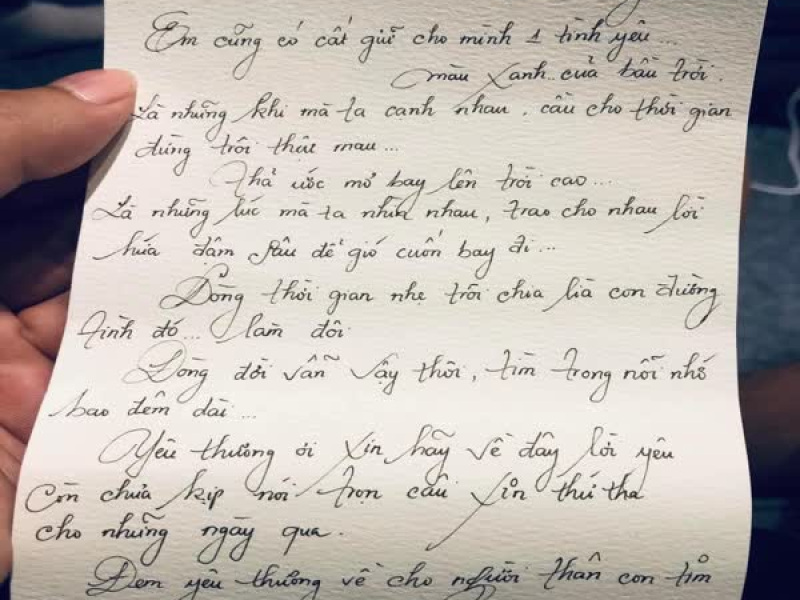 Em cũng có cất giữ cho mình 1 tình yêu...
màu xanh.. của bầu trời.
Là những khi mà ta cạnh nhau, cầu cho thời gian
đừng trôi thật mau...
Thả ước mơ bay lên trời cao...
Là những lúc mà ta nhìn nhau, trao cho nhau lời
hứa đậm sâu để gió cuốn bay đi...
Dòng thời gian nhẹ trôi chia lìa con đường
tình đó... làm đôi
Dòng đời vẫn vậy thôi, tìm trong nỗi nhớ
bao đêm dài...
Yêu thương ơi xin hãy về đây lời yêu
Còn chưa kịp nói trọn câu xin thứ tha
cho những ngày qua.
Đem yêu thương về cho người thân con tim